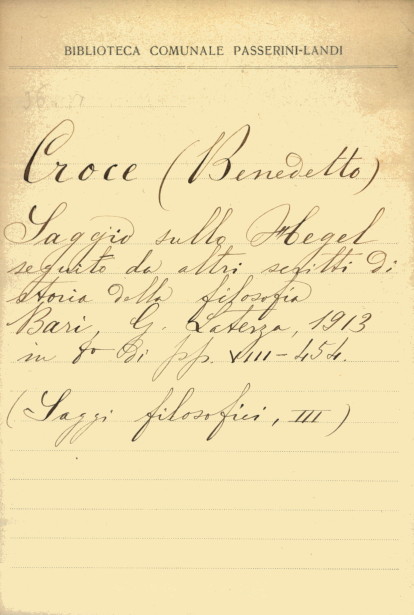 BIBLIOTECA COMUNALE PASSERINI-LANDI
Croce (Benedetto)
Saggio sullo Hegel
seguito da altri scritti di
storia della filosofia
Bari, G. Laterza, 1913
in 8° di pp. VIII-454.
(Saggi filosofici, III)